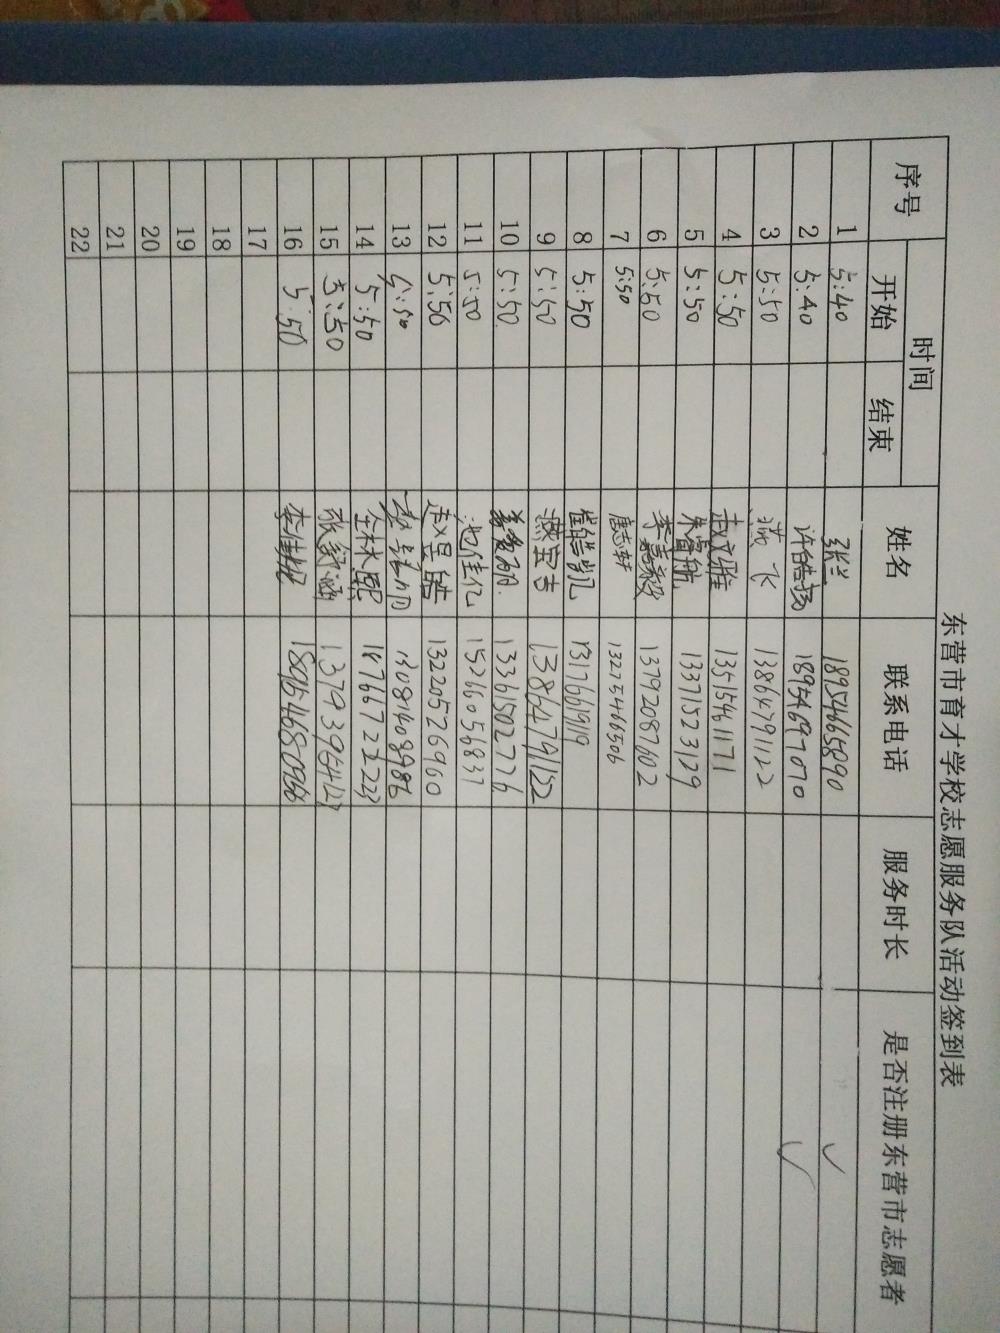 东营市育才学校志愿服务队活动签到表
序号 时间 姓名 联系电话 服务时长 是否注册东营市志愿者
开始 结束
1 5:40 张兰 18954665890 ✓
2 5:40 许皓扬 18954697070 ✓
3 5:50 飞 13864791122
4 5:50 赵文雅 13515461171
5 5:50 朱睿航 13371523129
6 5:50 李嘉毅 13792087602
7 5:50 唐志轩 13275466506
8 5:50 崔皓凯 13176619119
9 5:50 13864791122
10 5:50 13361502776
11 5:50 池佳亿 15266056837
12 5:50 赵昱皓 13220526960
13 5:50 13081408986
14 5:50 18766722223
15 5:50 张舒涵
16 5:50 李佳
17
18
19
20
21
22